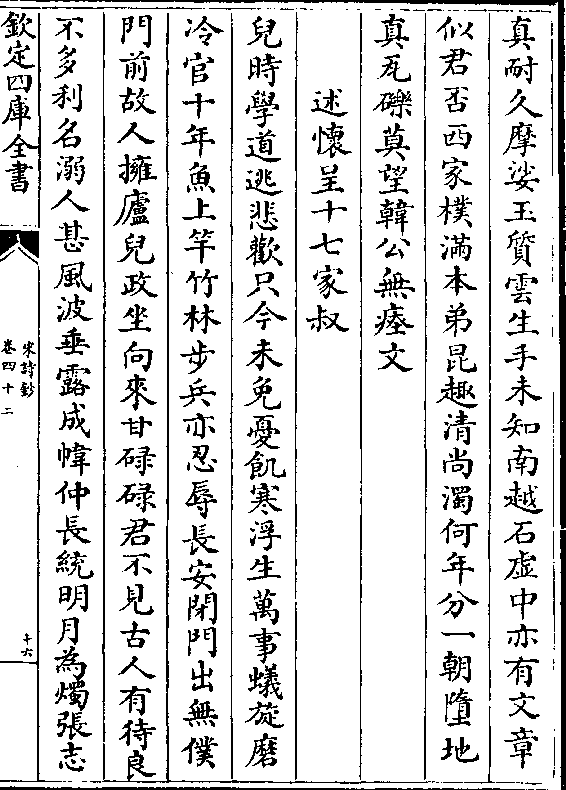 真耐久摩娑玉質雲生手未知南越石虛中亦有文章
似君否西家樸滿本弟昆趣清尚濁何年分一朝墮地
真瓦礫莫望韓公無瘞文
述懷呈十七家叔
兒時學道逃悲歡只今未免憂飢寒浮生萬事蟻旋磨
冷官十年魚上竿竹林步兵亦忍辱長安閉門出無僕
門前故人擁廬兒政坐向來甘碌碌君不見古人有待良
不多利名溺人甚風波垂露成幃仲長統明月為燭張志
欽定四庫全書
宋詩鈔
卷四十二
十六